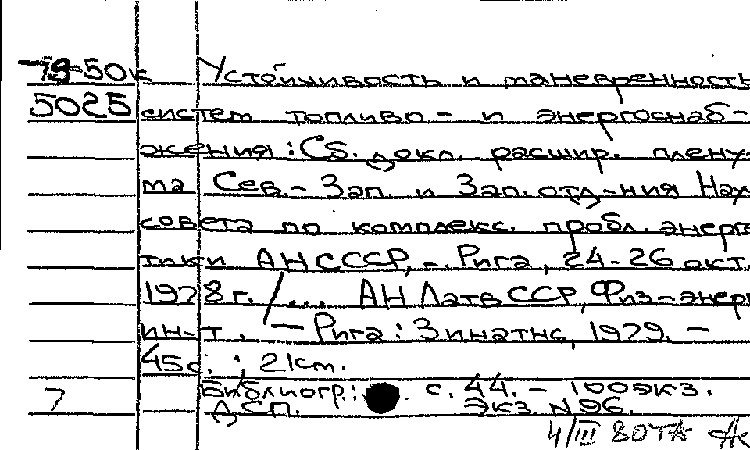 79-50к Устойчивость и маневренность
5025 систем топливо- и энергоснаб-
жения: Сб. докл. расшир. плену-
ма Сев.-Зап. и Зап. отд-ния Нах
совета по комплекс. пробл. энерге
тики АН СССР, - Рига, 24-26 окт.
1978 г. / ... АН ЛатвССР, Физ-энерг
ин-т. - Рига: Зинатне, 1979. -
45с. ; 21см.
7 Библиогр.: с. 44. - 100экз.
ДСП. Экз N 96.
4/III 80